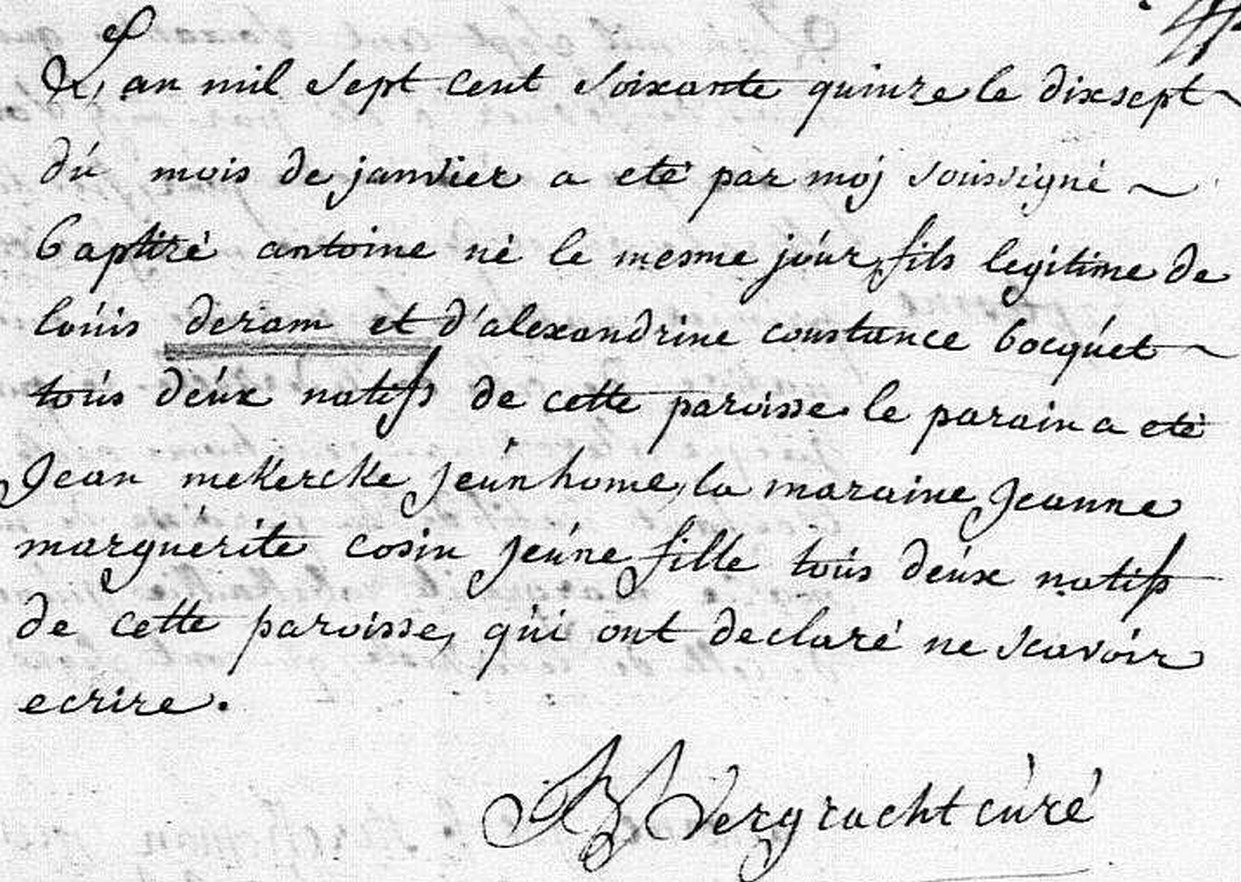 L'an mil sept cent soixante quinze le dixsept
dú mois de janvier a eté par moj soussigné
baptizé antoine né le mesme joúr, fils legitime de
loúis deram et d'alexandrine constance bocqúet
toús deúx natifs de cette paroisse le parain a eté
Jean mekercke jeúnhome, la maraine Jeanne
margúerite cosin jeúne fille toús deúx natifs
de cette paroisse, qúi ont declaré ne scavoir
ecrire.
Vergracht cúré